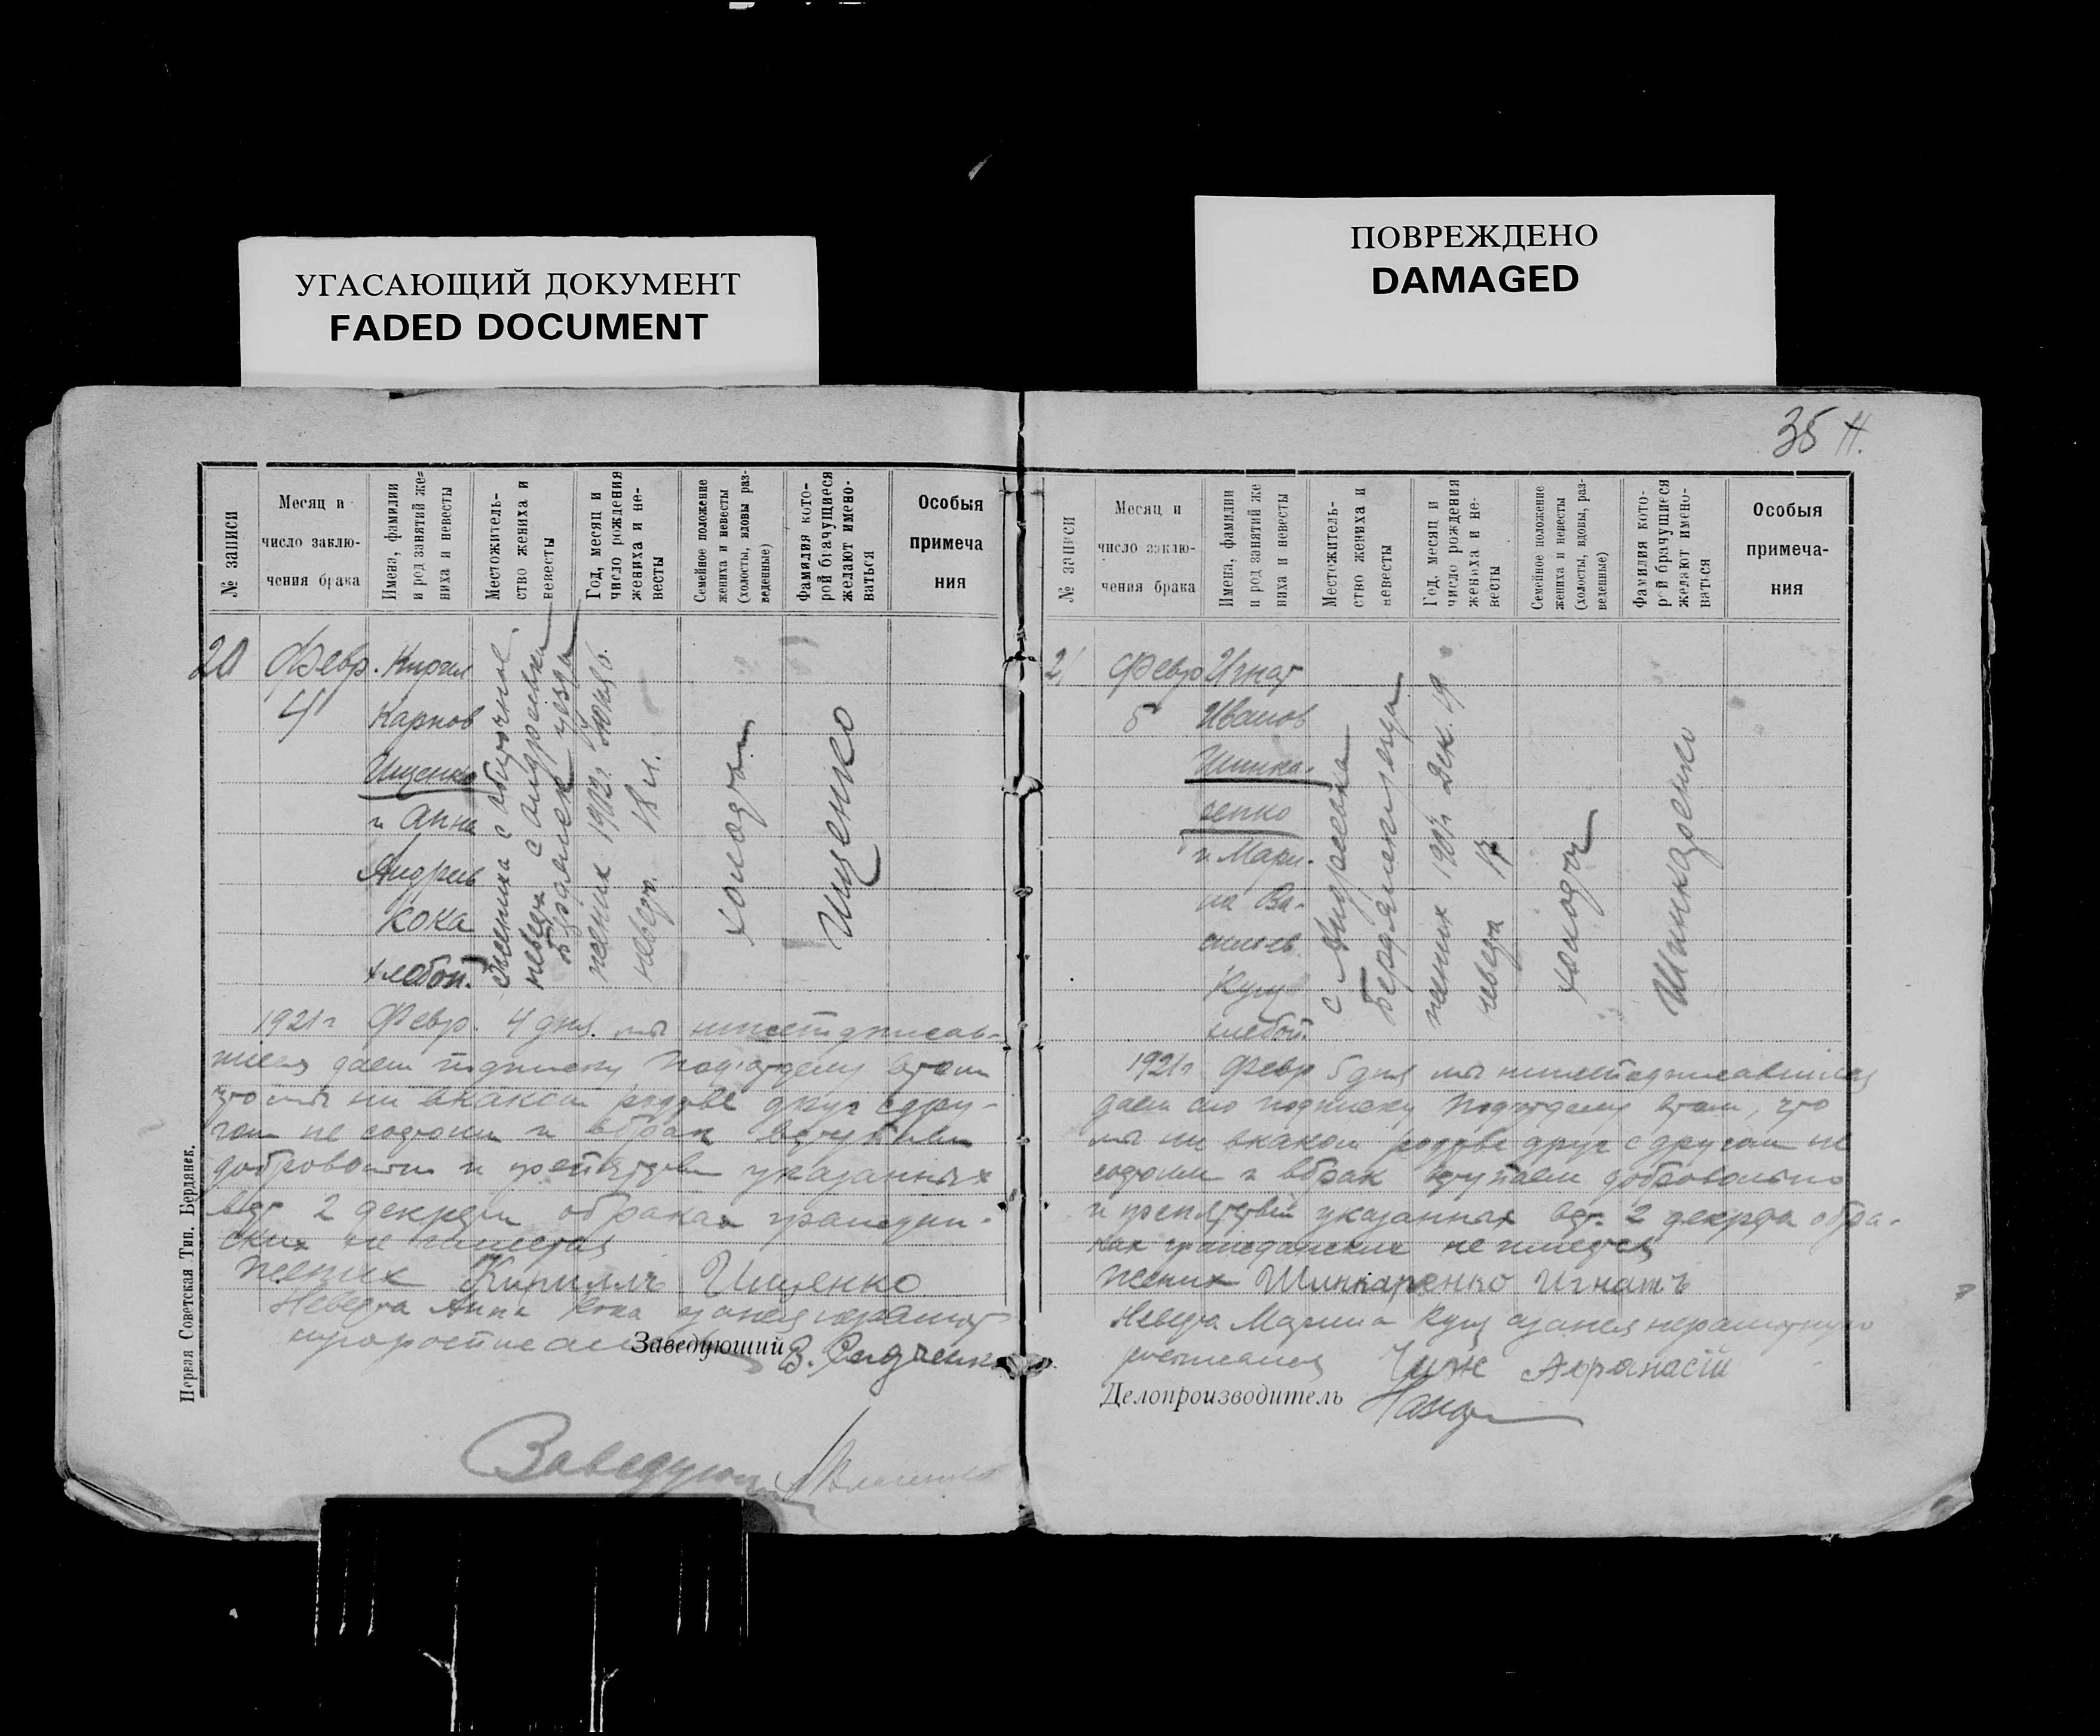 УГАСАЮЩИЙ ДОКУМЕНТ
FADED DOCUMENT
ПОВРЕЖДЕНО
DAMAGED
35
№ записи
Месяц и
число заклю-
чения брака
Имена, фамилии
и род занятий же=
ниха и невесты
Местожитель-
ство жениха и
невесты
Год, месяц и
число рождения
жениха и не-
весты
Семейное положение
жениха и невесты
(холосты, вдовы раз-
веденные)
Фамилия кото-
рой брачущиеся
желают имено-
ваться
Особыя
примеча
ния
20
Февр.
4
Кирил
Карпов
Ищенко
и Анна
Андреев
Кока
хлебоп.
жениха с
невеста с Андреевки
Бердянск уезда
жених 1902 г.
невест. 18 л.
холост
Ищенко
1921 г Февр. 4 дня. мы нижеподписав-
шиеся даем подписку Подотделу втом
что мы ни вкаком родстве друг сдру-
гом не состоим и вбрак вступаем
добровольно и препятствий указанных
вст 2 декрета обраках граждан-
ских не имеется
жених Кириллъ Ищенко
Невеста Анна Кока
Заведующий В.
Заведующ
Первая Советская Тип. Бердянск.
№ записи
Месяц и
число заклю-
чения брака
Имена, фамилии
и род занятий же
ниха и невесты
Местожитель-
ство жениха и
невесты
Год, месяц и
число рождения
жениха и не-
весты
Семейное положение
жениха и невесты
(холосты, вдовы, раз-
веденные)
Фамилия кото-
рой брачущиеся
желают имено-
ваться
Особыя
примеча-
ния
21
Февр
5
Игнат
Иванов
Шинка-
ренко
и Мари-
на Ва-
сильев
Кущ
хлебоп.
с Андреевка
Бердянский уезда
жених Дек. 19
невеста 17
холост
Шинкаренко
1921 г Февр 5 дня мы нижеподписавшиеся
даем сию подписку Подотделу втом, что
мы ни вкаком родстве друг с другом не
состоим и вбрак вступаем добровольно
и препятствий указанных вст. 2 декрета обра-
ках гражданских не имеется
жених Шинкаренко Игнатъ
Невеста Марина Кущ
расписался Чиж Афанасій
Делопроизводитель